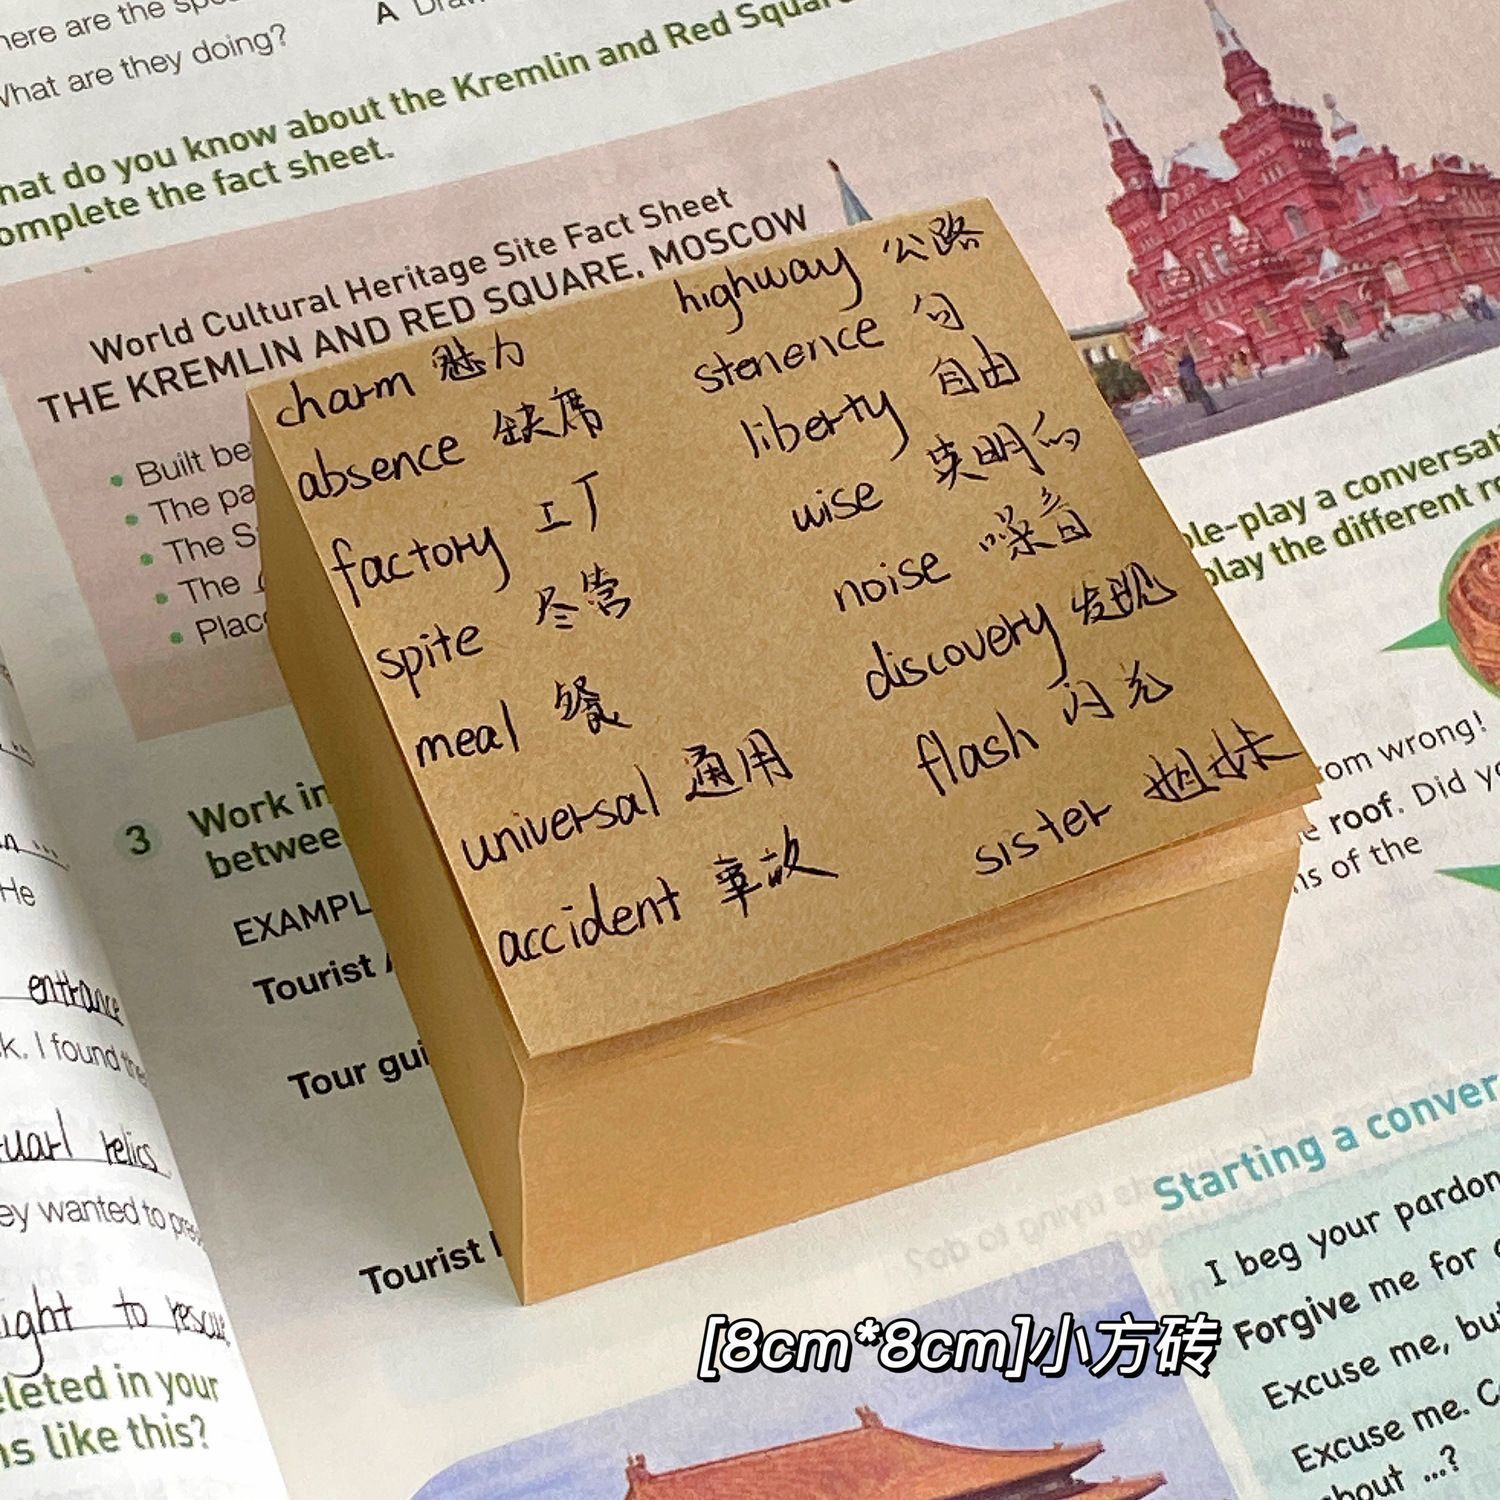 here are the
A
What are they doing?
hat do you know about the Kremlin and Red Square
omplete the fact sheet.
World Cultural Heritage Site Fact Sheet
THE KREMLIN AND RED SQUARE, MOSCOW
Built be
The pa
The S
The
Plac
charm 魅力
absence 缺席
factory 工厂
spite 尽管
meal 餐
universal 通用
accident 事故
highway 公路
stenence 句
liberty 自由
wise 英明的
noise 噪音
discovery 发现
flash 闪光
sister 姐妹
ole-play a conversati
play the different r
3 Work in
betwee
EXAMPL
Tourist
Tour gui
Tourist
om wrong!
roof. Did yo
ns of the
He
entrance
k. I found the
uarl relics
ey wanted to pres
ight to rescue
eleted in your
ns like this?
Starting a conver
I beg your pardon
Forgive me for
Excuse me, bu
Excuse me. C
about ...?
[8cm*8cm]小方砖